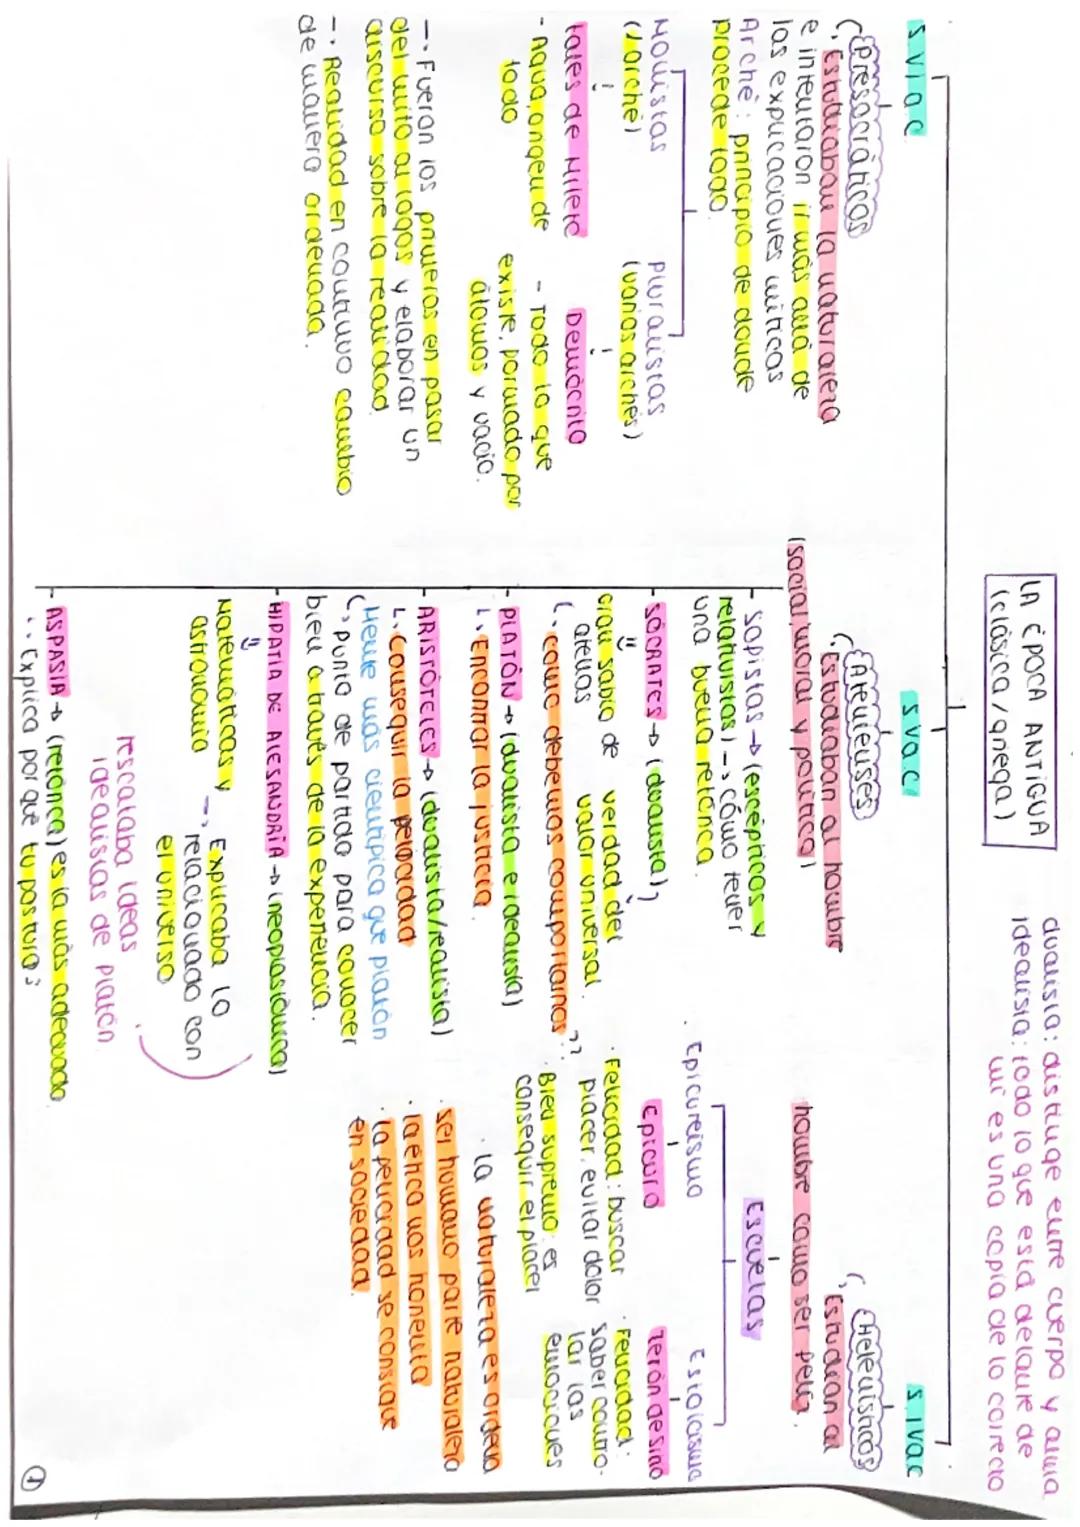 LA ÉPOCA ANTIGUA
(clásica/griega)
dualista: distinge entre cuerpo y alma
idealista: todo lo que está delante de
mí es una copia de lo correcto
S. VI a.C
(Presocráticos)
Estudiaban la naturaleza
e intentaron ir más allá de
las explicaciones míticas
Arché: principio de donde
procede todo.
Monistas
(1 arché)
Pluralistas
(varios archés)
Tales de Mileto
- Agua, origen de
todo
Demócrito
- Todo lo que
existe, formado por
átomos y vacío.
→ Fueron los primeros en pasar
del mito al logos y elaborar un
discurso sobre la realidad
→ Realidad en continuo cambio
de manera ordenada.
S V a.C
(Atenienses)
Estudiaban al hombre
(social, moral y política)
- Sofistas → (escépticos y
relativistas) → cómo tener
una buena retórica.
SÓCRATES → (dualista)
Gran sabio de
atenas
verdad del
valor universal.
como debemos comportarnos
PLATÓN → (dualista e idealista)
Encontrar la justicia.
ARISTÓTELES → (dualista/realista)
Conseguir la felicidad
Mente más científica que platón
punto de partida para conocer
bien a través de la experiencia.
HIPATIA DE ALESANDRÍA → (neoplatónica)
Matemáticas y
astronomía
→ Explicaba lo
relacionado con
el universo
rescataba ideas
idealistas de platón
ASPASIA → (retórica) es la más adecuada
Explica por qué tu postura?
S. IV a.C
(Helenísticos)
Estudian al
hombre como ser feliz.
Escuelas
Epicureismo
Epicuro
· Felicidad: buscar
placer, evitar dolor
· Bien supremo: es
conseguir el placer
Estoicismo
Zenón de Sitio
· Felicidad:
saber contro-
lar las
emociones
· la naturaleza es ordena
· Ser humano parte naturaleza
· la ética nos honenta
· la felicidad se consigue
en sociedad.
1